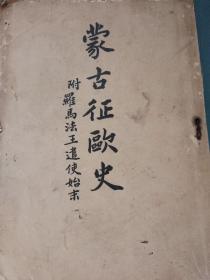 蒙古征歐史
附羅馬法王遣使始末